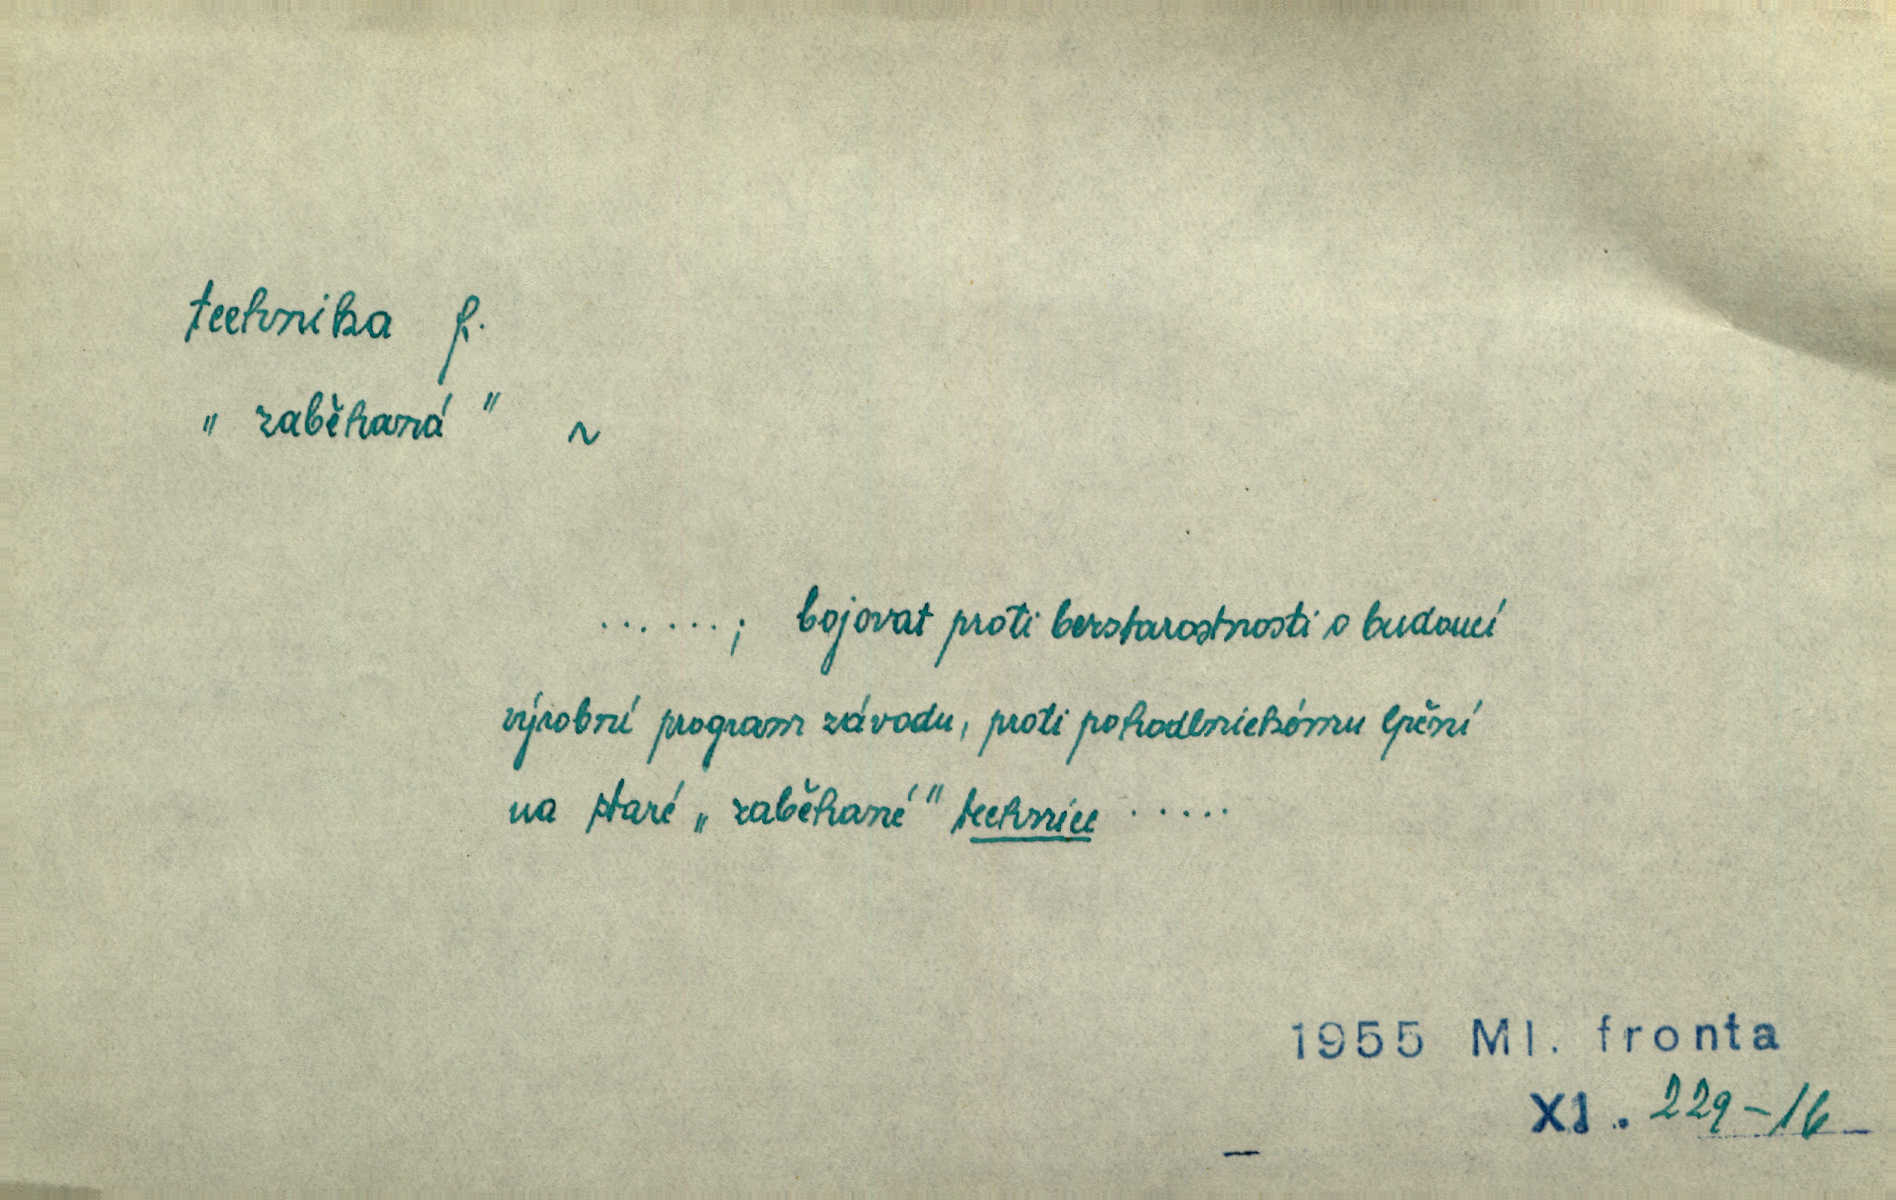 technika f.
„ zaběhaná " ~
.......; bojovat proti bezstarostnosti o budoucí
výrobní program závodu, proti pohodlnickému lpění
na staré „ zaběhané " technice .....
1955 Ml. fronta
XI. 229-16